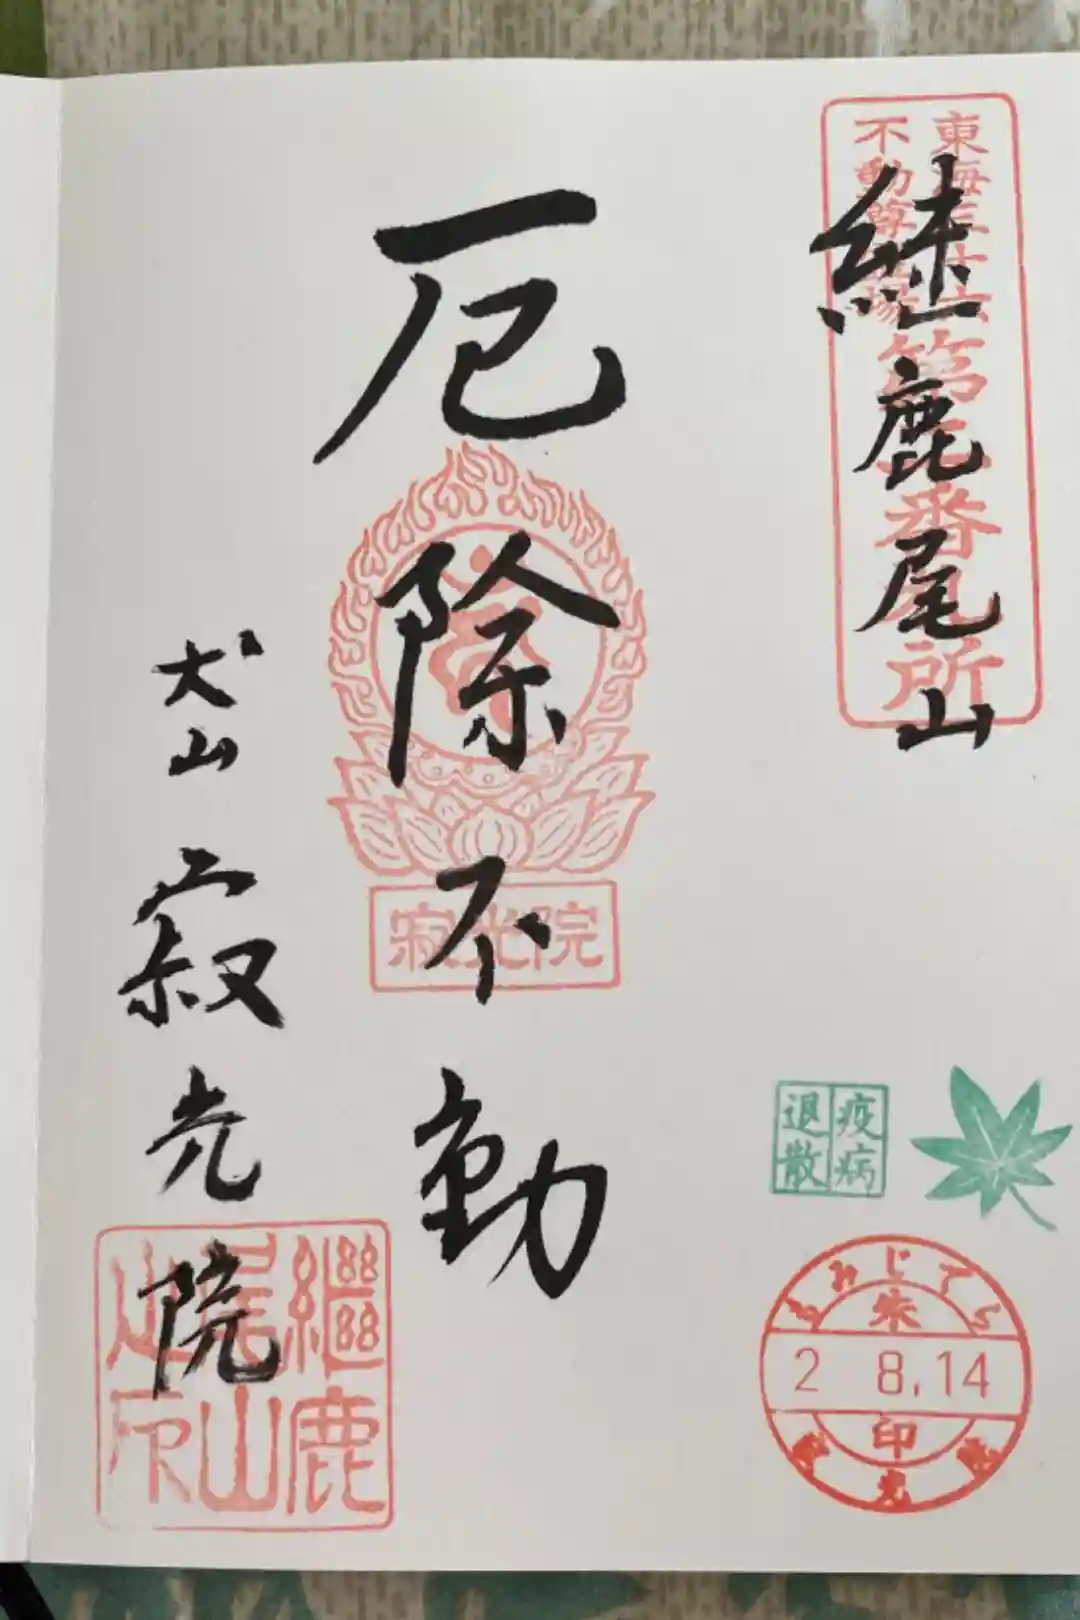 東海三十六
不動尊霊場
第三番札所
継鹿尾山
厄除不動
寂光院
犬山 寂光院
疫病
退散
もみじでら
朱
2 8.14
印
寂光院
継鹿
尾山